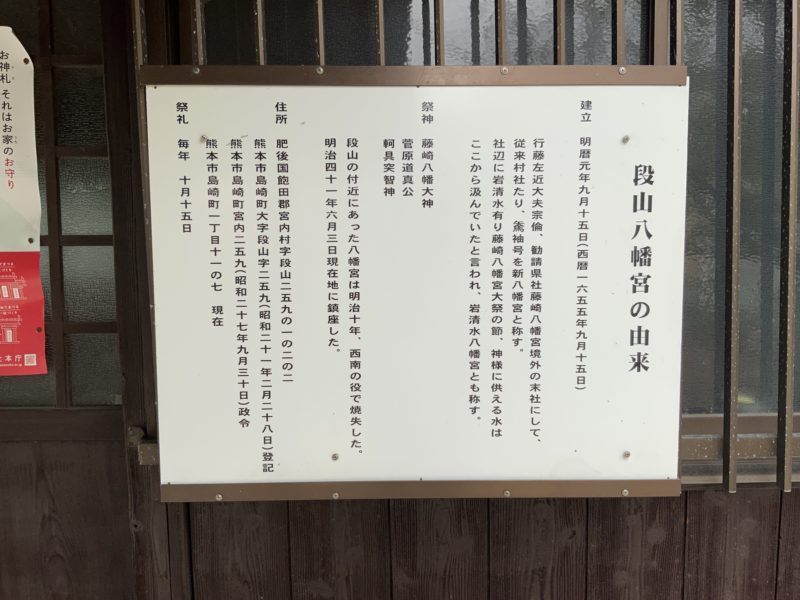 段山八幡宮の由来
建立　明暦元年九月十五日(西暦一六五五年九月十五日)
行藤左近大夫宗倫、勧請県社藤崎八幡宮境外の末社にして、
従来村社たり、袖号を新八幡宮と称す。
社辺に岩清水有り藤崎八幡宮大祭の節、神様に供える水は
ここから汲んでいたと言われ、岩清水八幡宮とも称す。
祭神　藤崎八幡大神
菅原道真公
軻具突智神
段山の付近にあった八幡宮は明治十年、西南の役で焼失した。
明治四十一年六月三日現在地に鎮座した。
住所　肥後国飽田郡宮内村字段山二五九の一の二の二
熊本市島崎町大字段山字二五九(昭和二十一年二月二十八日)登記
熊本市島崎町宮内二五九(昭和二十七年九月三十日)政令
熊本市島崎町一丁目十一の七　現在
祭礼　毎年　十月十五日
お神札　それはお家のお守り
本庁